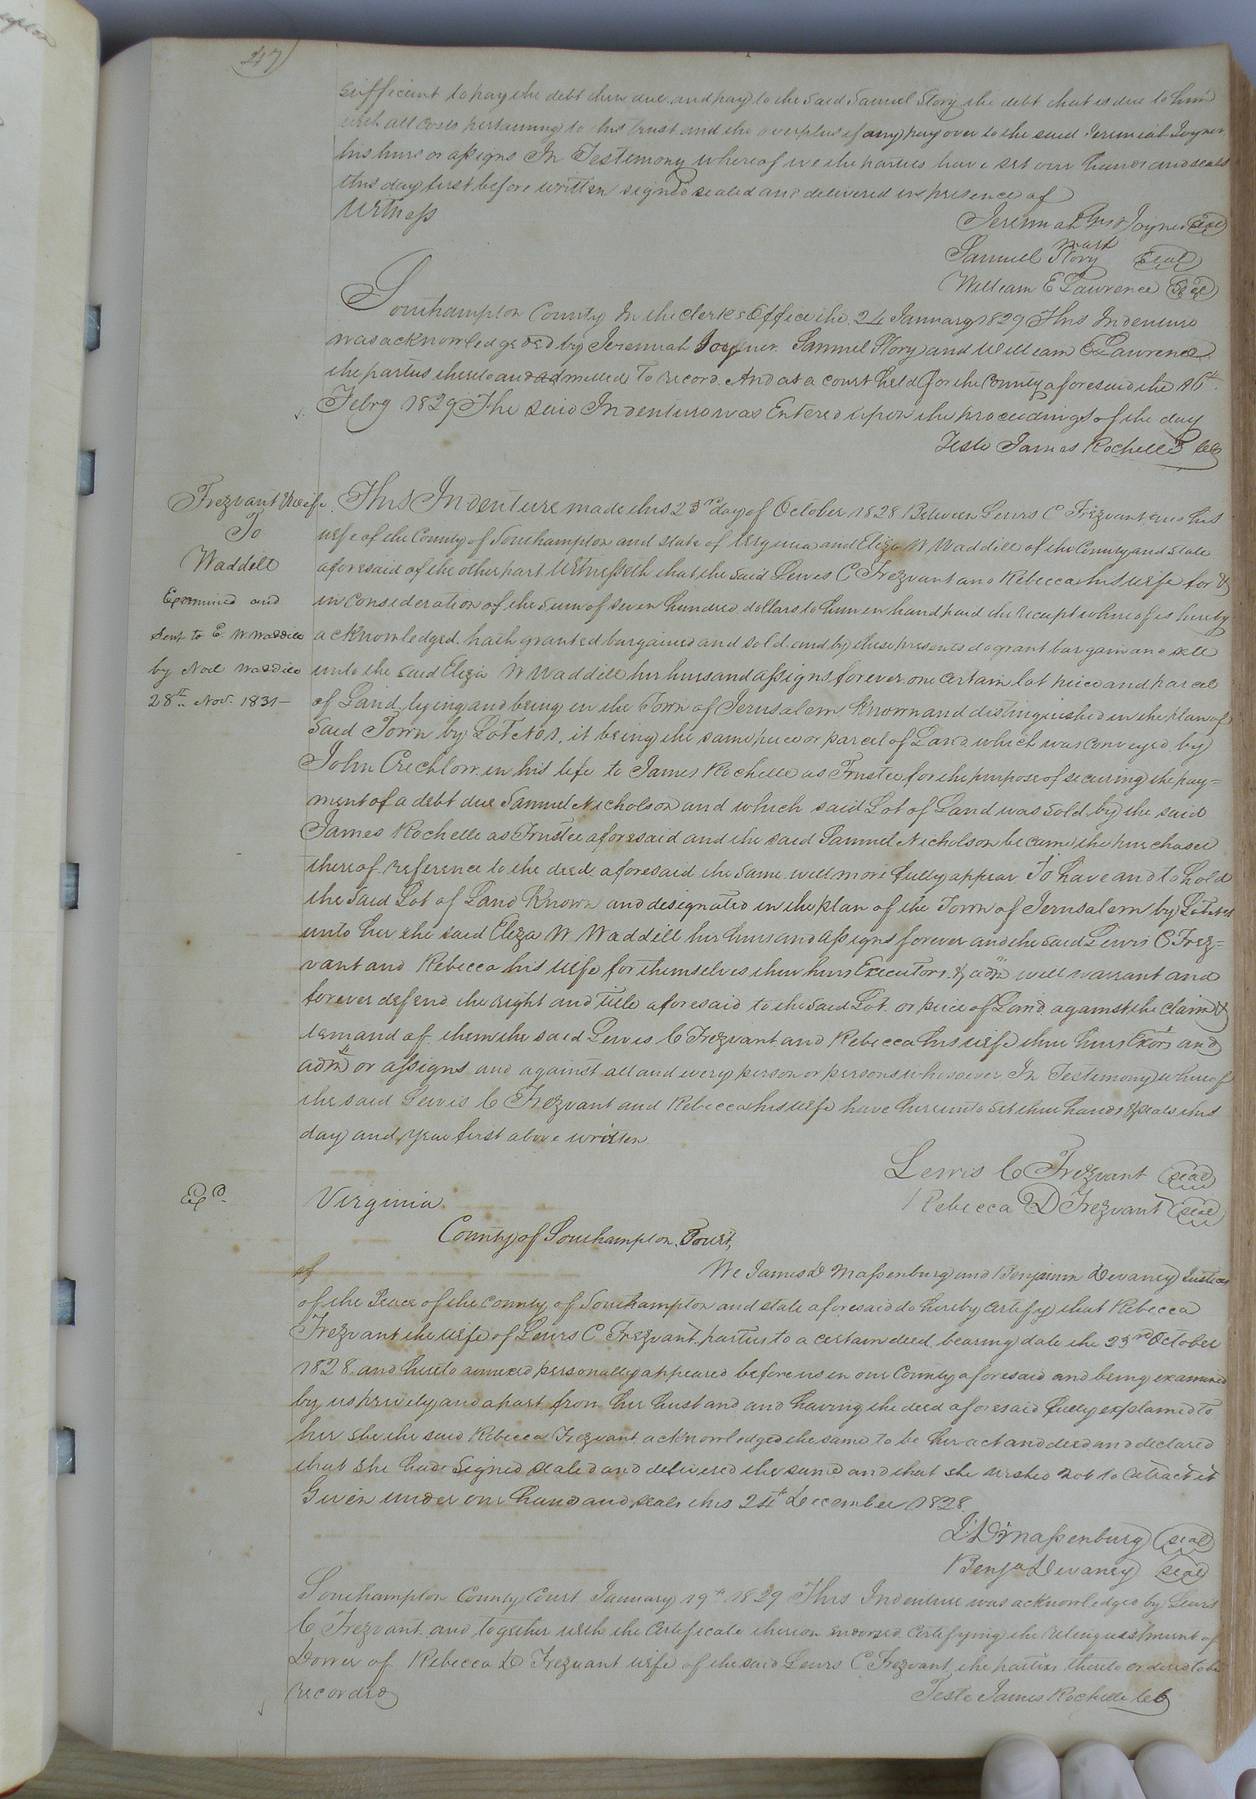 247
sufficient to pay the debt then due and pay to the said Samuel Story the debt that is due to him
with all costs pertaining to this trust and the overplus if any pay over to the said Jeremiah Joyner
his heirs or assigns In Testimony whereof we the parties have set our hands and seals
this day first before written signed sealed and delivered in presence of
Witness
Jeremiah his Joyner seal
mark
Samuel Story seal
William E Lawrence seal
Southampton County In the clerks Office the 24 January 1829 This Indenture
was acknowledged by Jeremiah Joyner Samuel Story and William E Lawrence
the parties thereto and admitted to record. And at a court held for the County aforesaid the 16th
Feby 1829 The said Indenture was Entered upon the proceedings of the day
Teste James Rochelle
Frezvant & wife
To
Waddill
Examined and
sent to E. W. Waddill
by Noel Waddill
28th Nov. 1831 —
This Indenture made this 23rd day of October 1828 Between Lewis C Frezvant and his
wife of the County of Southampton and state of Virginia and Eliza W Waddill of the County and State
aforesaid of the other part Witnesseth that the said Lewis C Frezvant and Rebecca his wife for &
in consideration of the sum of seven hundred dollars to him in hand paid the receipt whereof is hereby
acknowledged hath granted bargained and sold and by these presents do grant bargain and sell
unto the said Eliza W Waddill her heirs and assigns forever one certain lot piece and parcel
of Land lying and being in the Town of Jerusalem Known and distinguished in the plan of
Said Town by Lot No 1, it being the same piece or parcel of Land which was conveyed by
John Crichlow in his life to James Rochelle as Trustee for the purpose of securing the pay=
ment of a debt due Samuel Nicholson and which said Lot of Land was sold by the said
James Rochelle as Trustee aforesaid and the said Samuel Nicholson became the purchaser
thereof reference to the deed aforesaid the same will more fully appear To have and to hold
the said Lot of Land Known and designated in the plan of the Town of Jerusalem by
unto her the said Eliza W Waddill her heirs and assigns forever and the said Lewis C Frez=
vant and Rebecca his wife for themselves their heirs Executors & adm will warrant and
forever defend the right and title aforesaid to the said Lot or piece of Land against the claim &
demand of them the said Lewis C Frezvant and Rebecca his wife their heirs Exors and
adm or assigns and against all and every person or persons whosoever In Testimony whereof
the said Lewis C Frezvant and Rebecca his wife have hereunto set their hands & seals this
day and year first above written
Lewis C Frezvant seal
Rebecca D Frezvant seal
Exd
Virginia
County of Southampton Court,
of
We James D Massenburg and Benjamin Devaney Justices
of the Peace of the County of Southampton and state aforesaid do hereby certify that Rebecca
Frezvant the wife of Lewis C Frezvant parties to a certain deed bearing date the 23rd October
1828 and hereto annexed personally appeared before us in our County aforesaid and being examined
by us privily and apart from her husband and having the deed aforesaid fully explained to
her she the said Rebecca Frezvant acknowledged the same to be her act and deed and declared
that she had signed sealed and delivered the same and that she wished not to retract it
Given under our hand and seals this 24th December 1828
J D Massenburg seal
Benja Devaney seal
Southampton County Court January 19th 1829 This Indenture was acknowledged by Lewis
C Frezvant and together with the certificate thereon endorsed certifying the relinquishment of
Dower of Rebecca D Frezvant wife of the said Lewis C Frezvant the parties thereto ordered to be
recorded
Teste James Rochelle